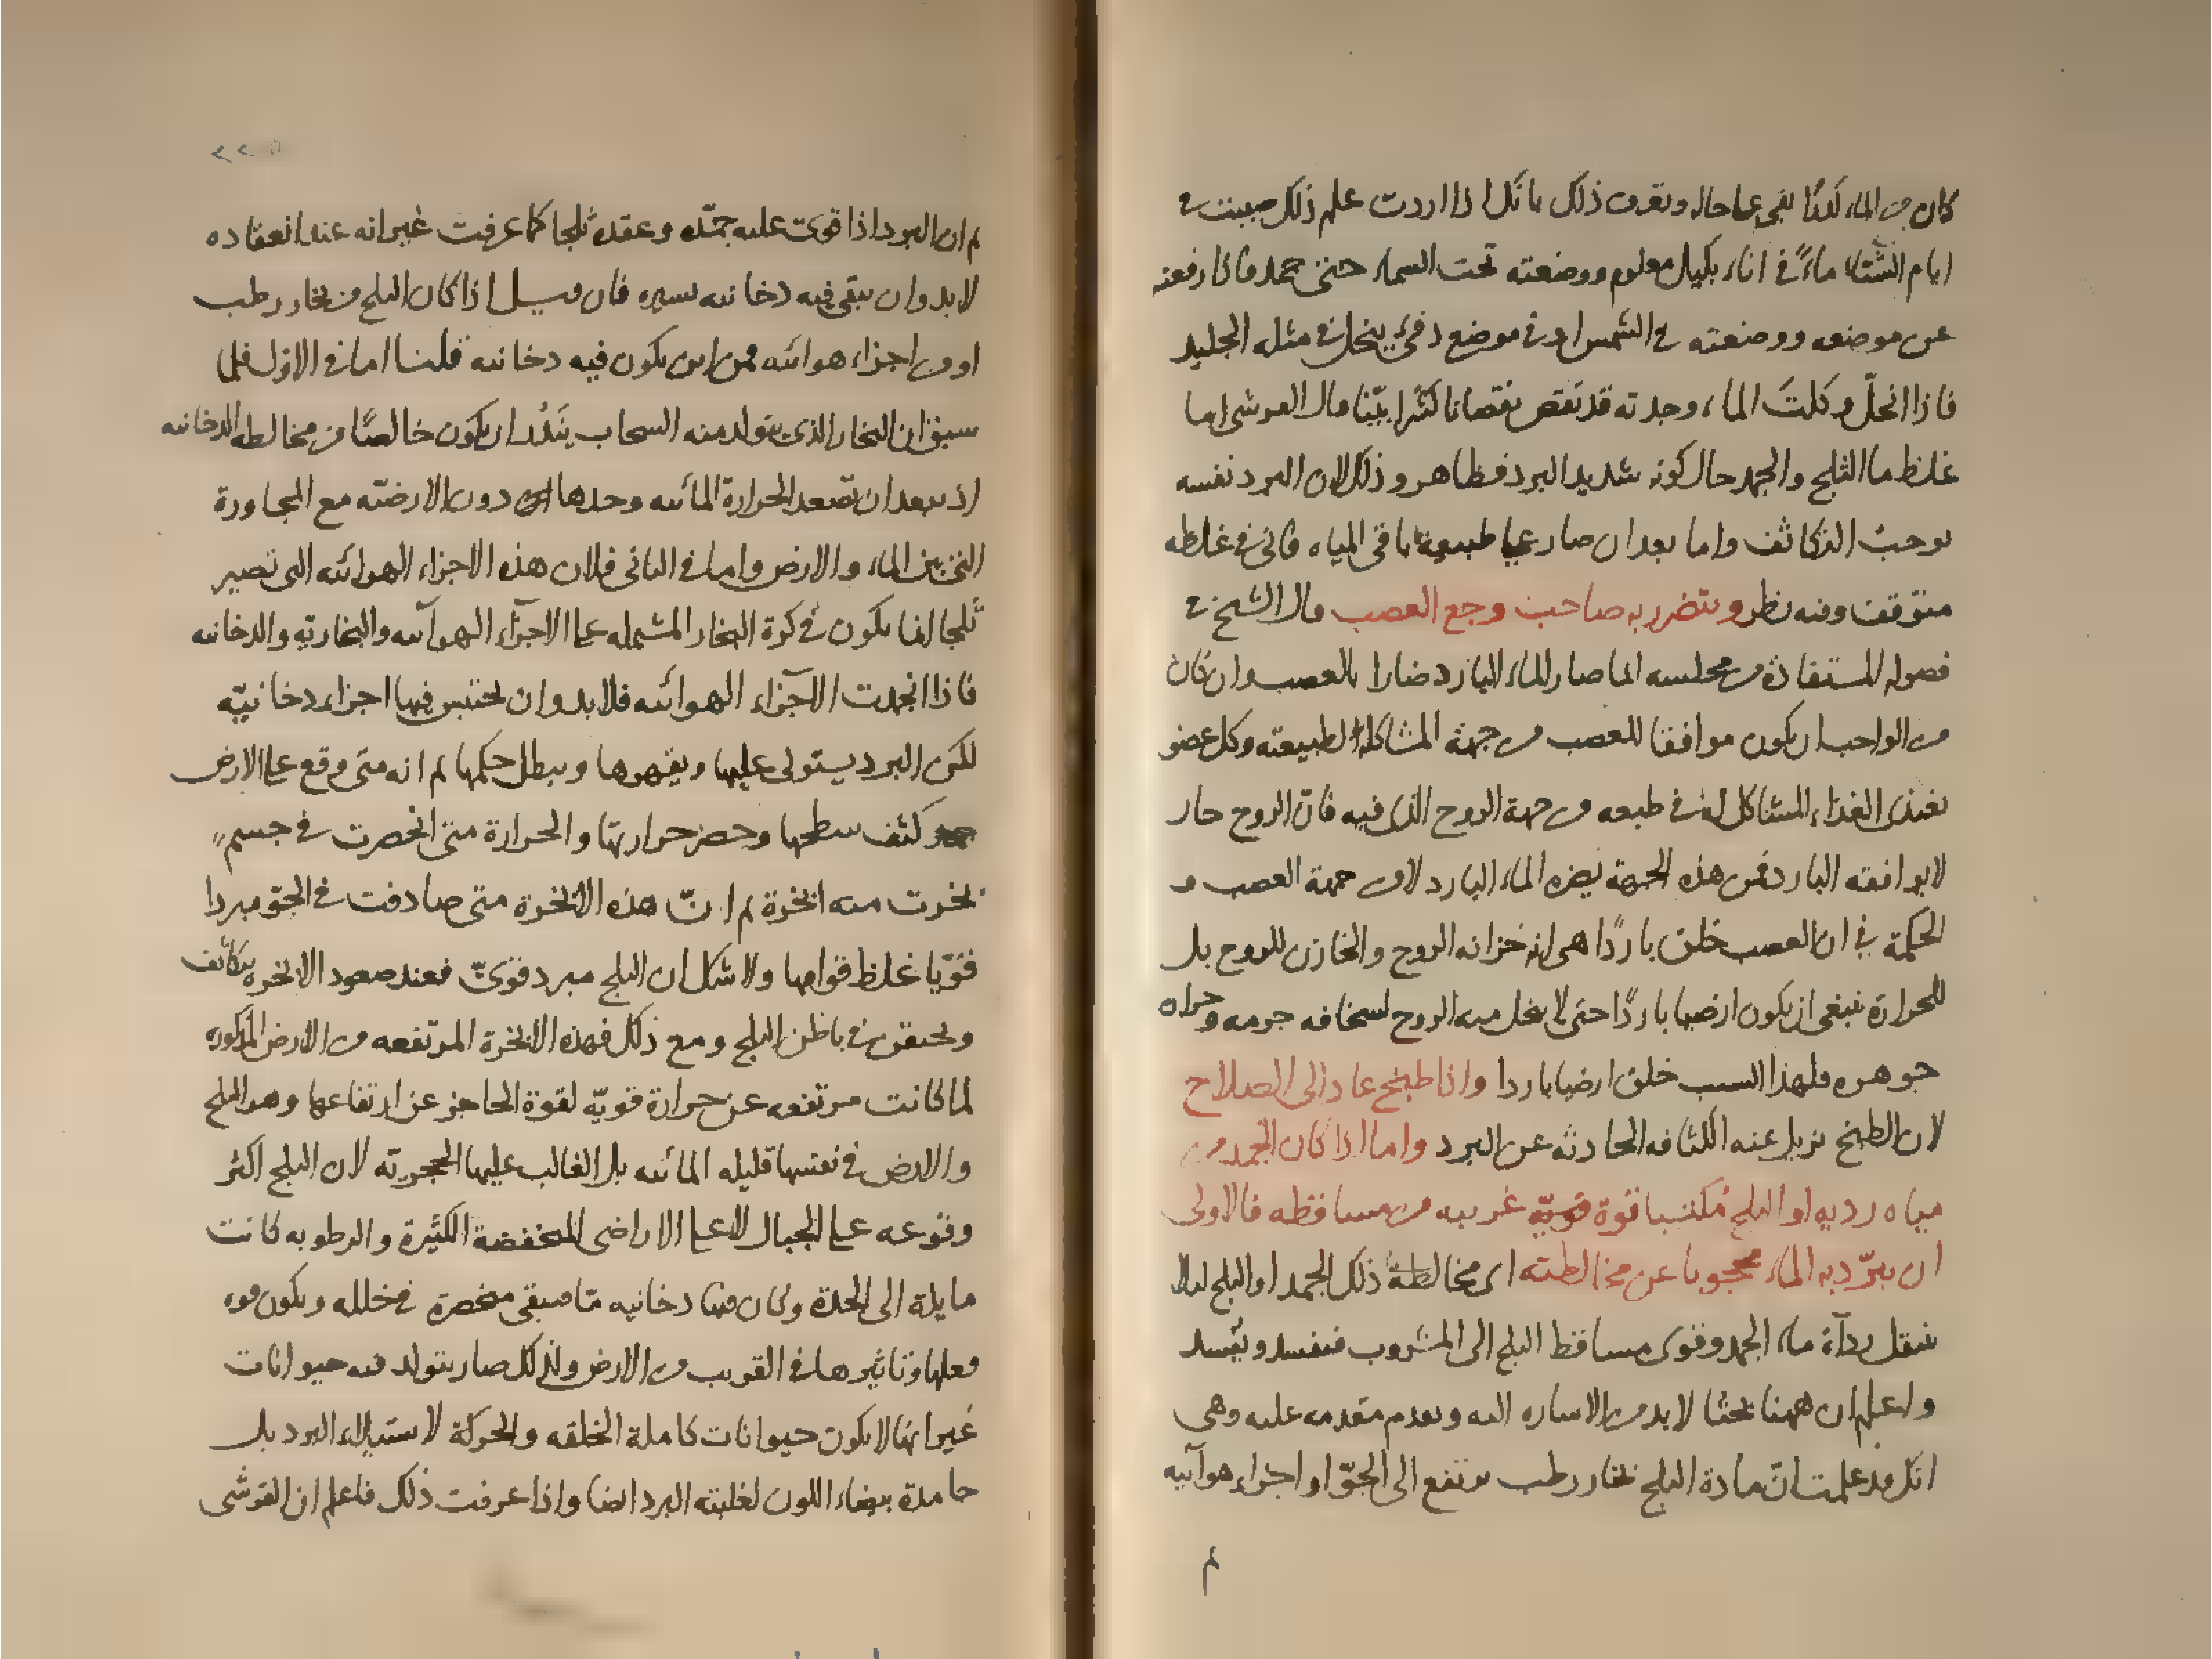 كان من الماء كدرا بقي على حاله وتعرف ذلك بانك اذا اردت علم ذلك صببت في
ايام الشتاء ماءً في اناء بكيل معلوم ووضعته تحت السماء حتى جمد فاذا رفعته
عن موضعه ووضعته في الشمس او في موضع دفئ ينحل في مثله الجليد
فاذا انحلّ وكلتَ الماء وجدته قد نقص نقصانا كثيرا بيّنا قال القرشى اما
غلظ ماء الثلج والجمد حال كونه شديد البرد فظاهر وذلك لان البرد نفسه
يوجب التكاثف واما بعد ان صار على طبيعة باقى المياه فانى في غلظه
متوقف وفيه نظر ويتضرر به صاحب وجع العصب قال الشيخ في
فصوله المستفادة من مجلسه انما صار الماء البارد ضارا بالعصب وان كان
من الواجب ان يكون موافقا للعصب من جهة المشاكلة لطبيعته وكل عضو
يغتذى الغذاء المشاكل له في طبعه من جهة الروح الذى فيه فانّ الروح حار
لا يوافقه البارد فمن هذه الجهة يضره الماء البارد لا من جهة العصب و
الحكمة في ان العصب خلق باردًا هى انه خزانه الروح والخازن للروح بل
للحرارة ينبغى ان يكون ارضيا باردًا حتى لا يتحلل منه الروح لسخافه جرمه وحراره
جوهره فلهذا السبب خلق ارضيا باردا واذا طبخ عاد الى الصلاح
لان الطبخ يزيل عنه الكثافه الحادثه عن البرد واما اذا كان الجمد من
مياه رديه او الثلج مكتسبا قوة قويّه غريبه من مساقطه فالاولى
ان يبرّد به الماء محجوبا عن مخالطته اى مخالطة ذلك الجمد او الثلج لئلا
تنتقل رداءة ماء الجمد وقوى مساقط الثلج الى المشروب فتفسد ويُفسد
ولتعلم ان ههنا بحثا لا بد من الاشاره اليه ونقدم مقدمه عليه وهى
انك قد علمت انّ مادة الثلج بخار رطب يرتفع الى الجوّ او اجزاء هوائيه
ثم
ثم ان البرد اذا قوى عليه جمّده وعقده ثلجا كما عرفت غير انه عند انعقاده
لا بد وان يبقى فيه دخانيه يسيره فان قيل اذا كان الثلج من بخار رطب
او من اجزاء هوائيه فمن اين يكون فيه دخانيه قلنا اما في الاول فلما
سبق ان البخار الذى يتولد منه السحاب يَندُر ان يكون خالصًا من مخالطه الدخانيه
اذ يبعد ان تصعد الحرارة المائيه وحدها دون الارضيّه مع المجاورة
التى بين الماء والارض واما في الثانى فلان هذه الاجزاء الهوائيه التى تصير
ثلجا انما يكون في كرة البخار المشتمله على الاجزاء الهوائيه والبخاريّه والدخانيه
فاذا انجمدت الاجزاء الهوائيه فلا بد وان تحتبس فيها اجزاء دخانيّه
لكن البرد يستولى عليها ويقهرها ويبطل حكمها ثم انه متى وقع على الارض
كثف سطحها وحصر حرارتها والحرارة متى انحصرت في جسم
بخرت منه ابخرة ثم انّ هذه الابخرة متى صادفت في الجوّ مبردا
قويّا غلظ قوامها ولا شك ان الثلج مبرد قوىّ فعند صعود الابخره يتكاثف
وتحتقن في باطن الثلج ومع ذلك فهذه الابخرة المرتفعه من الارض المذكوره
لما كانت مرتفعه عن حرارة قويّه لقوة الحاجز عن ارتفاعها وهو الثلج
والارض في نفسها قليله المائيه بل الغالب عليها الحجريّه لان الثلج اكثر
وقوعه على الجبال لا على الاراضى المنخفضة الكثيرة والرطوبه كانت
مايلة الى الحدة وكان فيها دخانيه مّا فيبقى منحصرة في خلله ويكون قوه
فعلها وتاثيرها في القريب من الارض ولذلك صار يتولد فيه حيوانات
غير انها لا يكون حيوانات كاملة الخلقه والحركة لاستيلاء البرد بل
جامدة بيضاء اللون لغلبته البرد ايضا واذا عرفت ذلك فاعلم ان القرشى